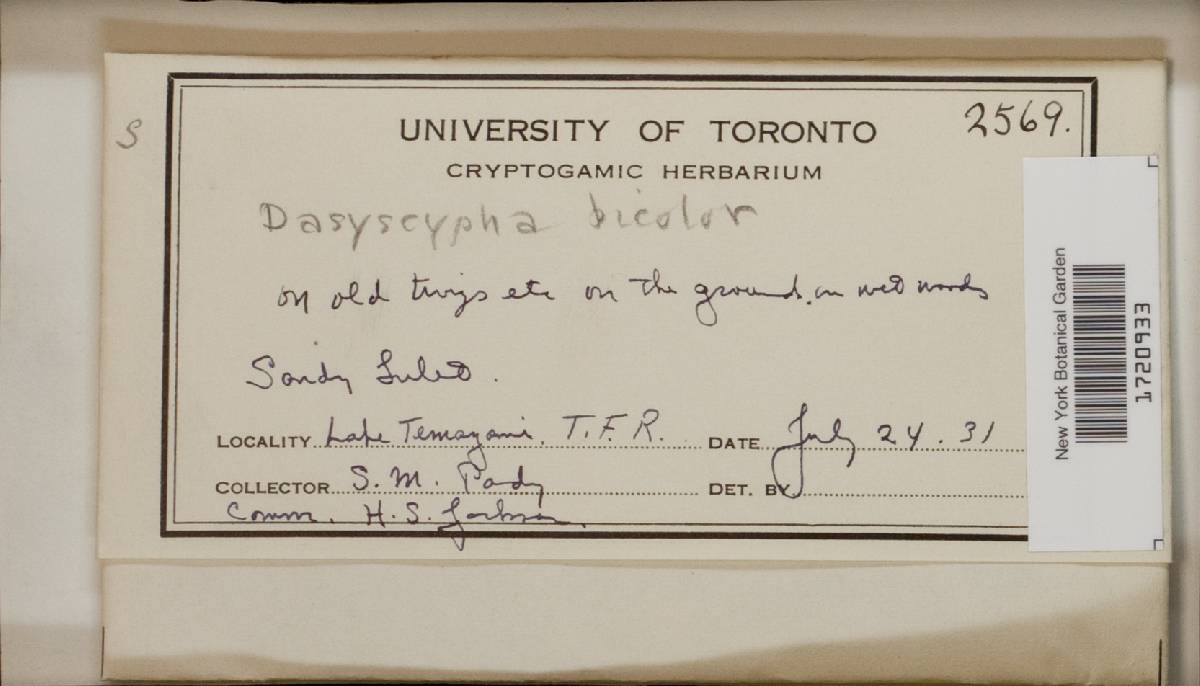 S
UNIVERSITY OF TORONTO
2569.
CRYPTOGAMIC HERBARIUM
Dasyscypha bicolor
on old twigs etc on the ground. in wet woods
Sandy Inlet.
LOCALITY Lake Temagami, T.F.R. DATE July 24.31
COLLECTOR S. M. Pady DET. BY
Comm. H.S. Jackson.
New York Botanical Garden
1720933